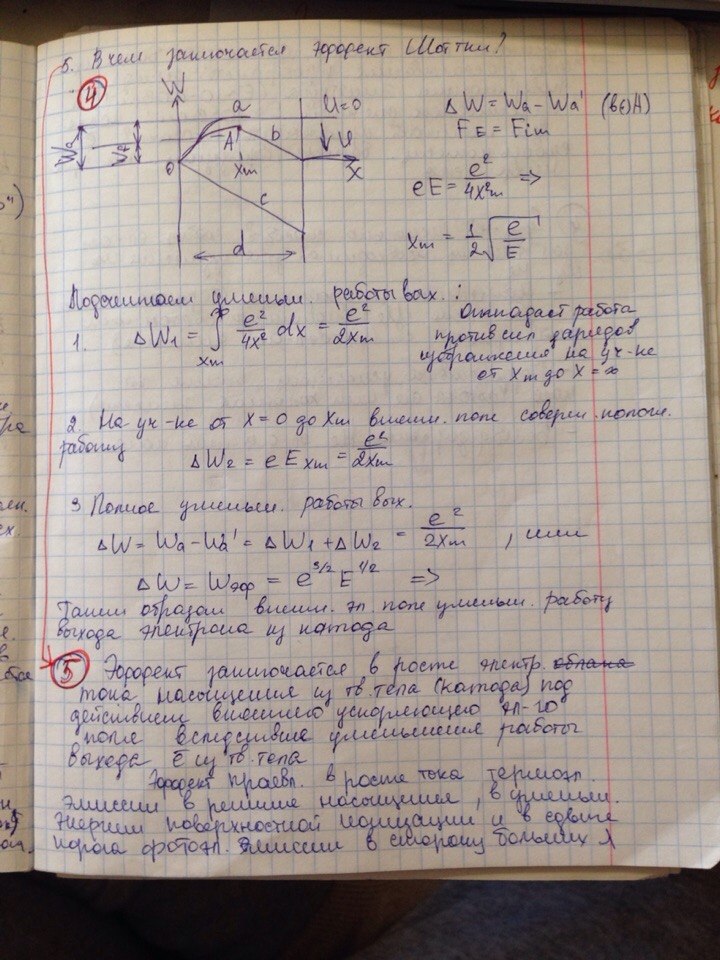 5. В чем заключается эффект Шоттки?
4
W a U=0
A b U
Wa Wa'
0 xm x
c
d
ΔW = Wa - Wa' (в(·)A)
F_E = Fim
eE = e²/4x²m =>
xm = 1/2 √(e/E)
Подсчитаем уменьш. работы вых.:
1. ΔW₁ = ∫xm^∞ e²/4x² dx = e²/2xm
Отпадает работа
против сил зарядов
изображения на уч-ке
от xm до x = ∞
2. На уч-ке от x = 0 до xm внешн. поле соверш. полож.
работу
ΔW₂ = e E xm = e²/2xm
3 Полное уменьш. работы вых.
ΔW = Wa - Wa' = ΔW₁ + ΔW₂ = e²/2xm , или
ΔW = Wэф = e^3/2 E^1/2 =>
Таким образом внешн. эл. поле уменьш. работу
выхода электрона из катода
5 Эффект заключается в росте электр. облака
тока насыщения из тв. тела (катода) под
действием внешнего ускоряющего эл-го
поля вследствие уменьшения работы
выхода ē из тв. тела
Эффект проявл. в росте тока термоэл.
эмиссии в режиме насыщения, в уменьш.
энергии поверхностной ионизации и в сдвиге
порога фотоэл. эмиссии в сторону больших λ